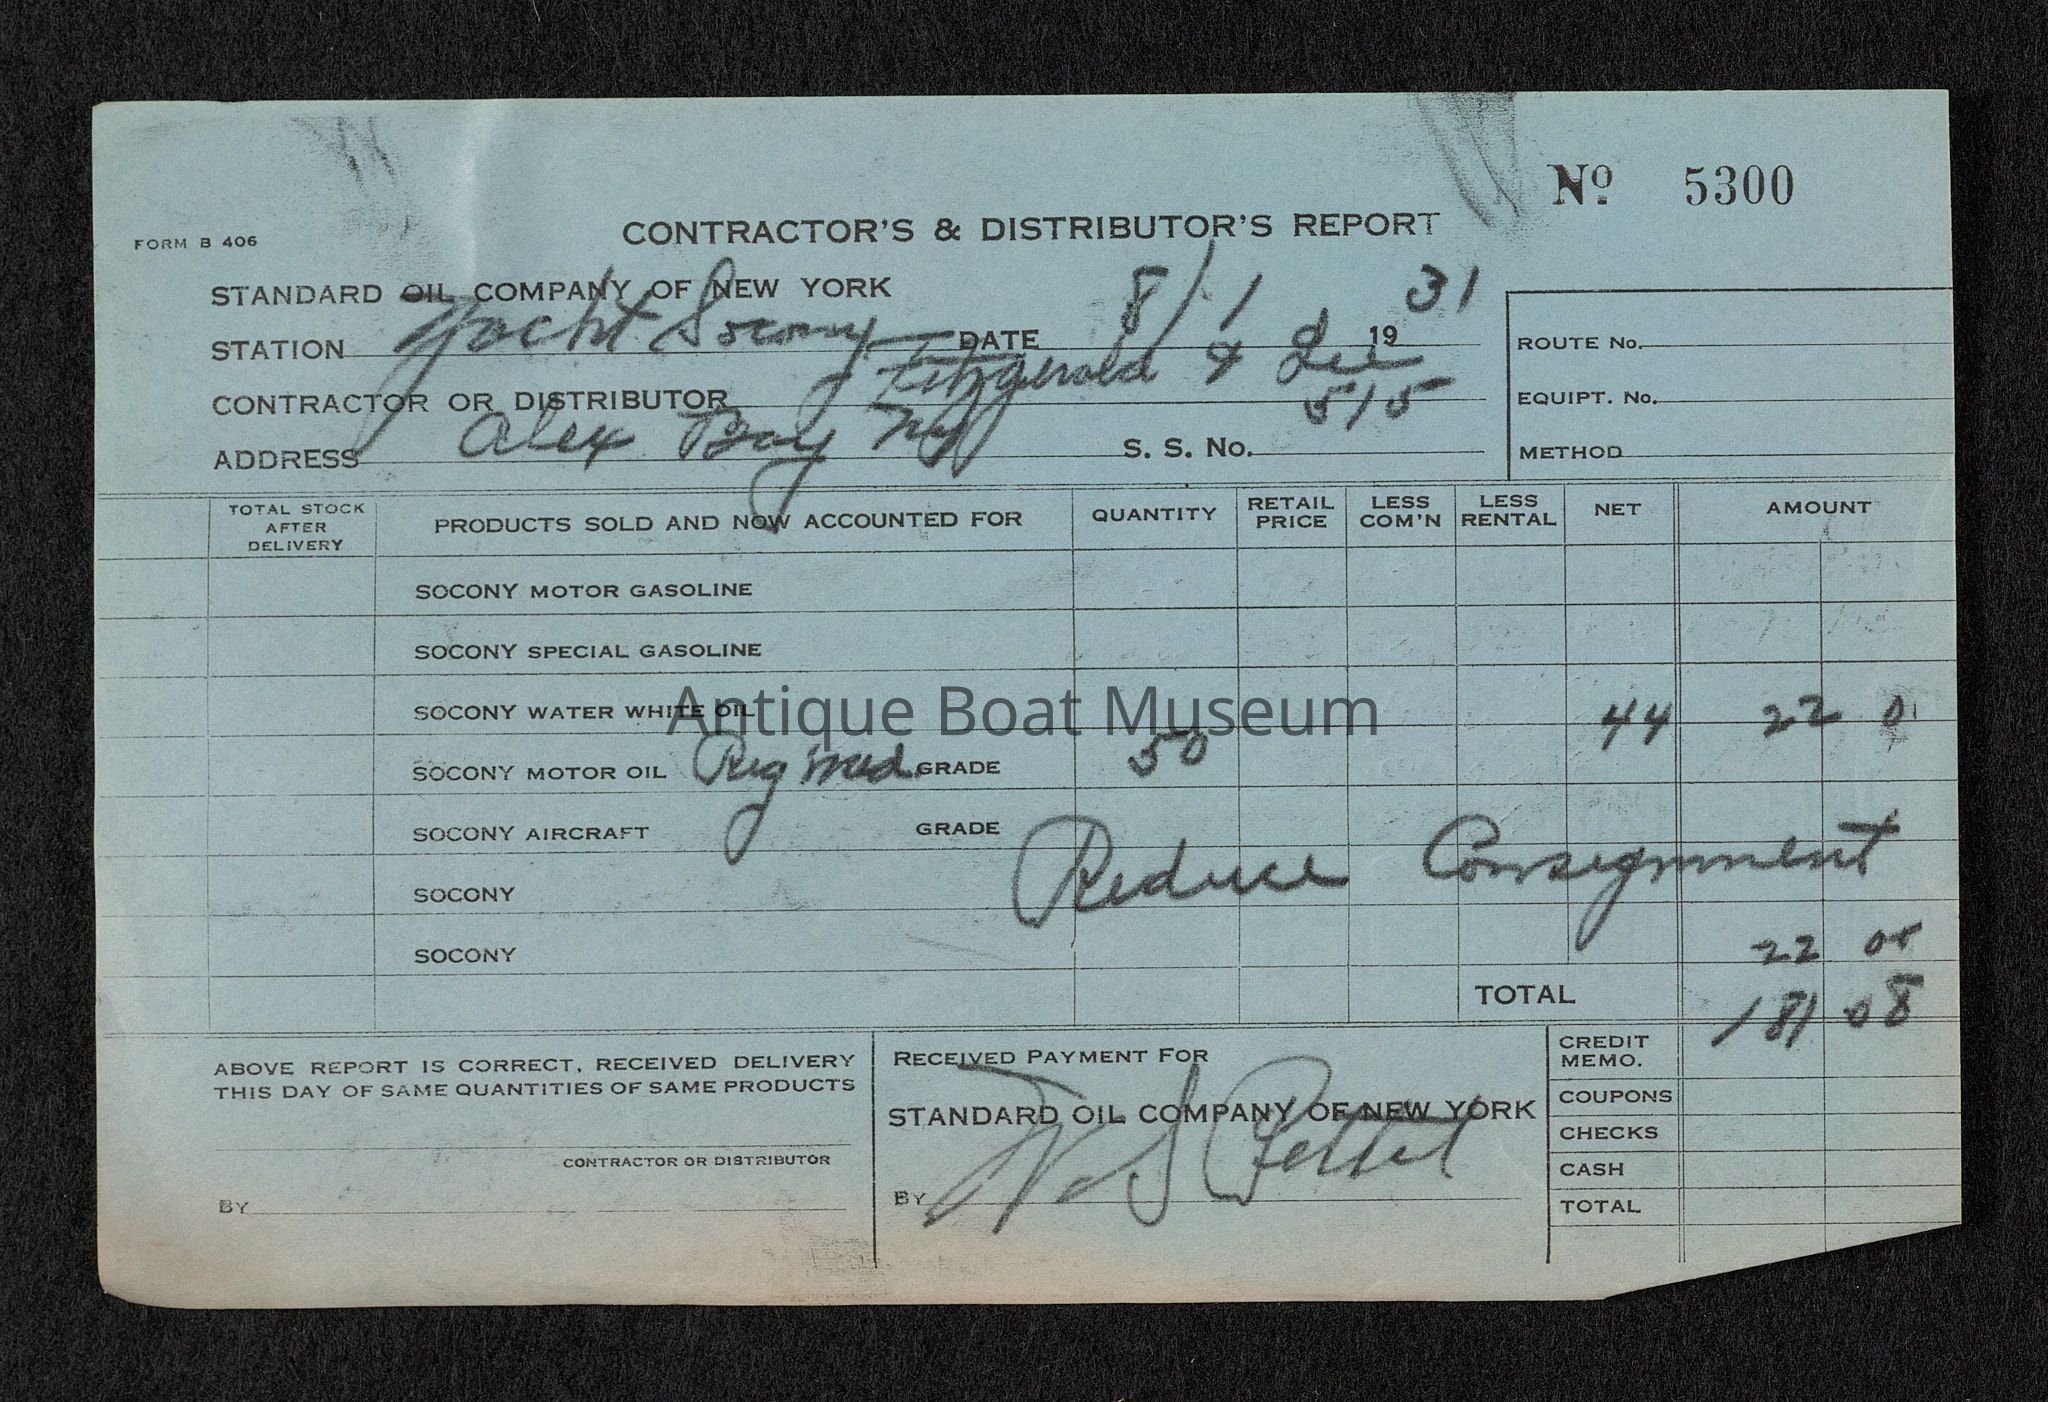 No. 5300
CONTRACTOR'S & DISTRIBUTOR'S REPORT
FORM B 406
STANDARD OIL COMPANY OF NEW YORK
STATION Yacht Socony DATE 8/1 1931
CONTRACTOR OR DISTRIBUTOR Fitzgerald & Lee
ADDRESS Alex Bay NY S. S. No. 515
ROUTE No.
EQUIPT. No.
METHOD
TOTAL STOCK AFTER DELIVERY PRODUCTS SOLD AND NOW ACCOUNTED FOR QUANTITY RETAIL PRICE LESS COM'N LESS RENTAL NET AMOUNT
SOCONY MOTOR GASOLINE
SOCONY SPECIAL GASOLINE
SOCONY WATER WHITE OIL
Antique Boat Museum
SOCONY MOTOR OIL Reg med. GRADE 50 44 22 0
SOCONY AIRCRAFT GRADE
Reduce Consignment
SOCONY
SOCONY 22 00
TOTAL 181 08
ABOVE REPORT IS CORRECT, RECEIVED DELIVERY
THIS DAY OF SAME QUANTITIES OF SAME PRODUCTS
CONTRACTOR OR DISTRIBUTOR
BY
RECEIVED PAYMENT FOR
STANDARD OIL COMPANY OF NEW YORK
BY
CREDIT MEMO.
COUPONS
CHECKS
CASH
TOTAL